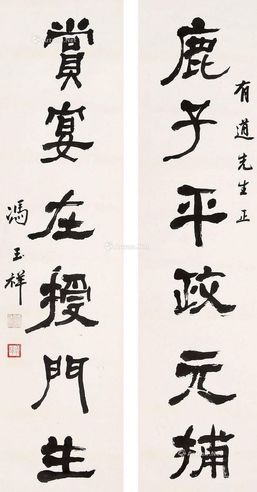 有道先生正
鹿子平政元捕
賞宴在授門生
馮玉祥